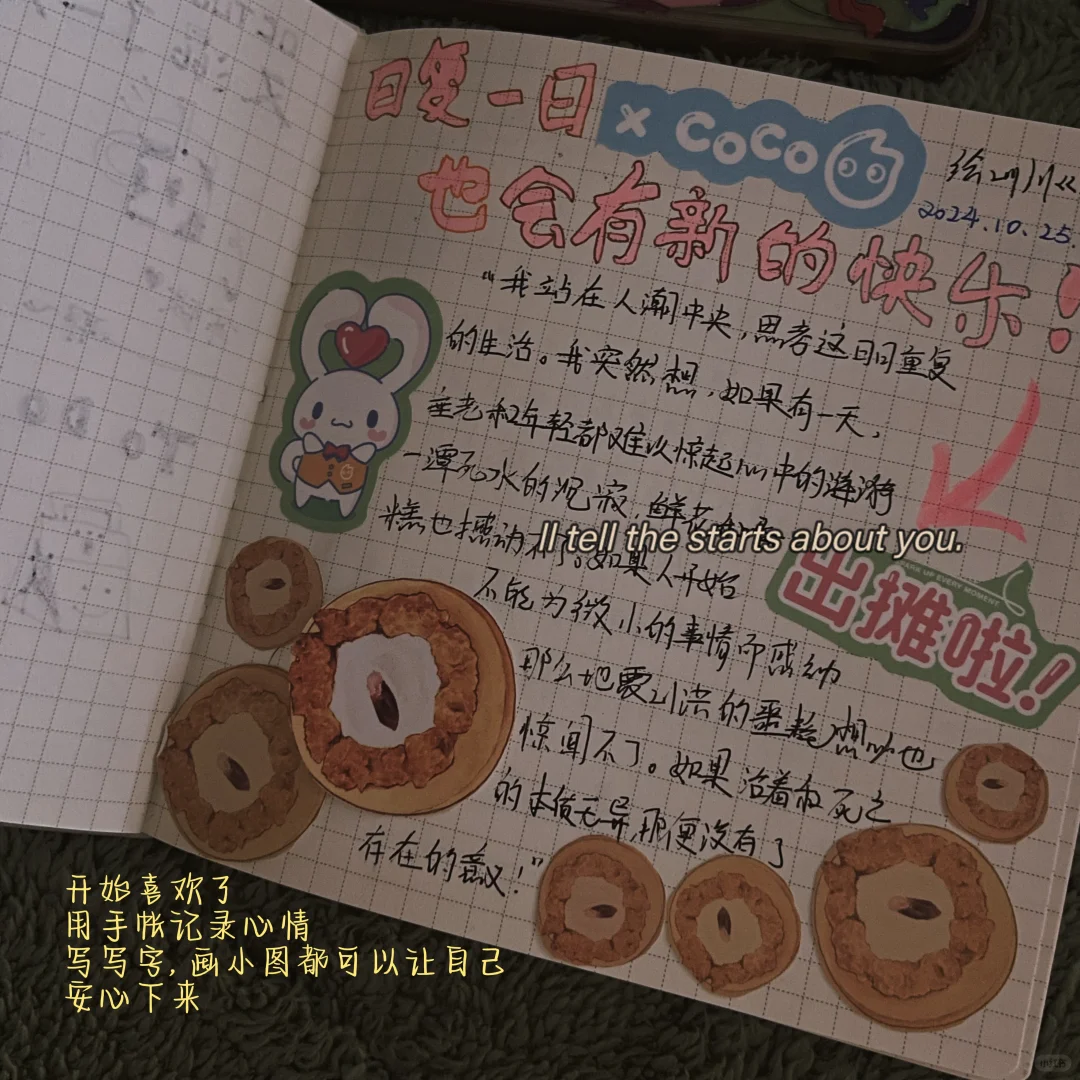 日复一日
× CoCo
也会有新的快乐!
2024.10.25.
"我站在人潮中央,思考这日日重复
的生活。我突然想,如果有一天,
老和年轻都难以惊起心中的涟漪
一潭死水的沉寂,鲜花
糕也撼动不了。如果人开始
ll tell the starts about you.
不能为微小的事情而感动
WAKE UP EVERY MOMENT
出摊啦!
那么地震到法的噩耗想必也
惊闻不了。如果活着和死亡
的本质无异,那便没有了
存在的意义!"
开始喜欢了
用手帐记录心情
写写字,画小图都可以让自己
安心下来